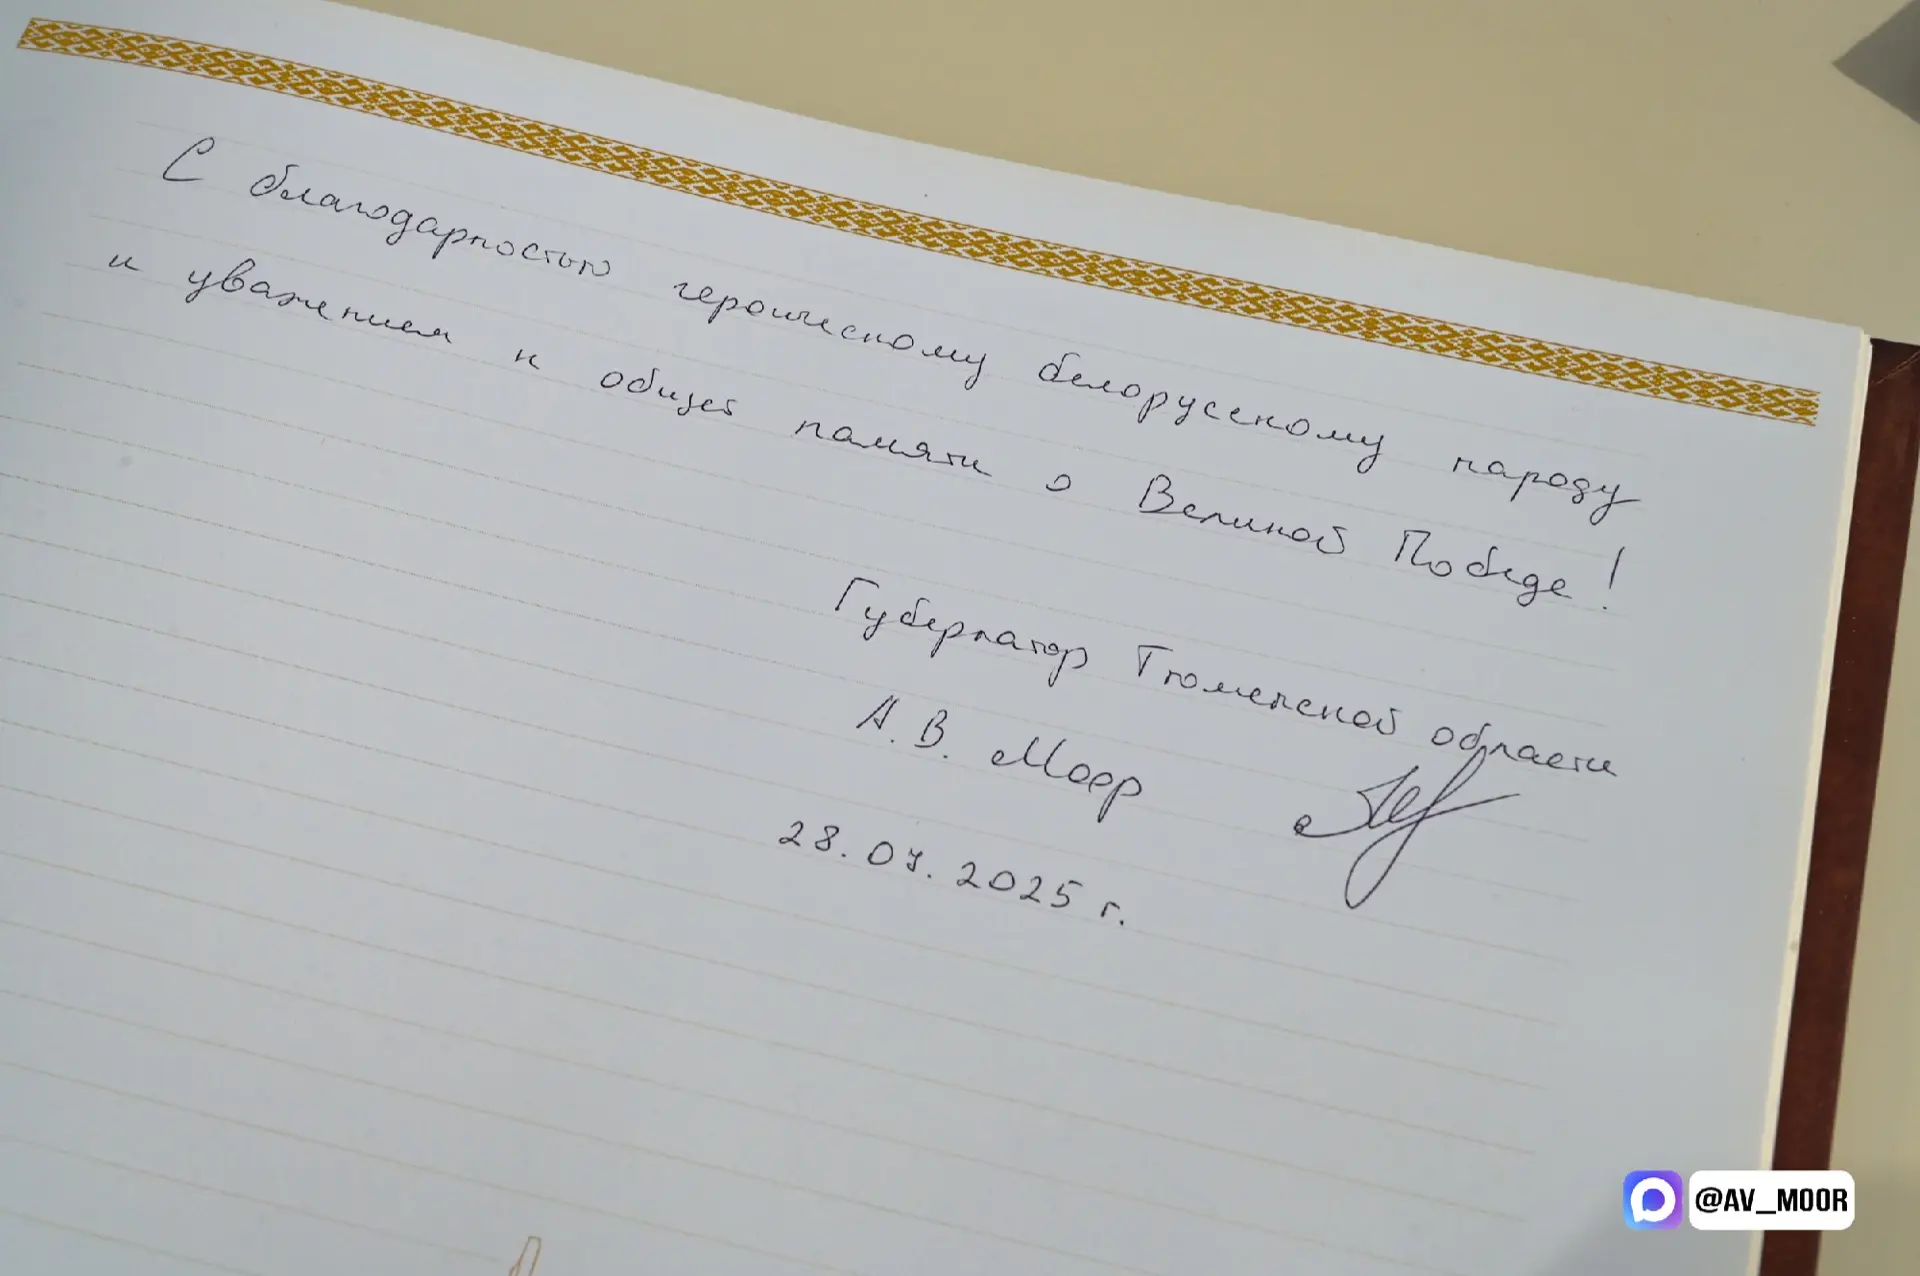 С благодарностью героическому белорусскому народу
и уважением к общей памяти о Великой Победе!
Губернатор Тюменской области
А.В. Моор
28.07.2025 г.
@AV_MOOR